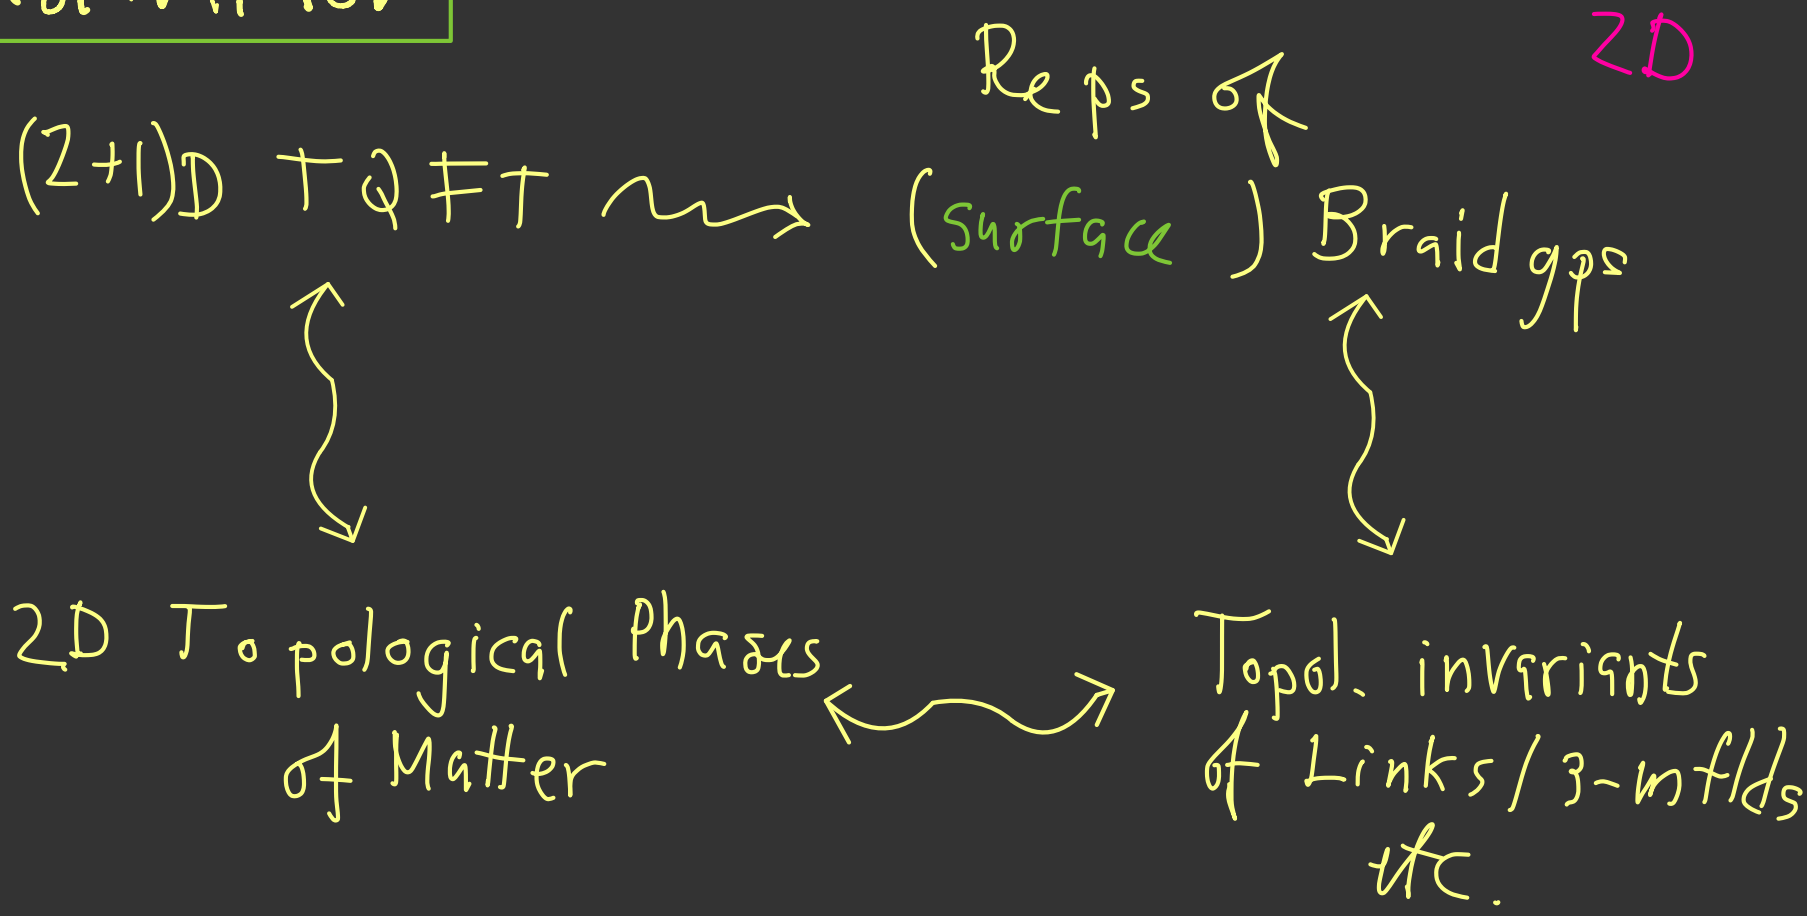 2D
Reps of
(2+1)D TQFT (surface) Braid gps
2D Topological Phases
of Matter
Topol. invariants
of Links/3-mflds
etc.